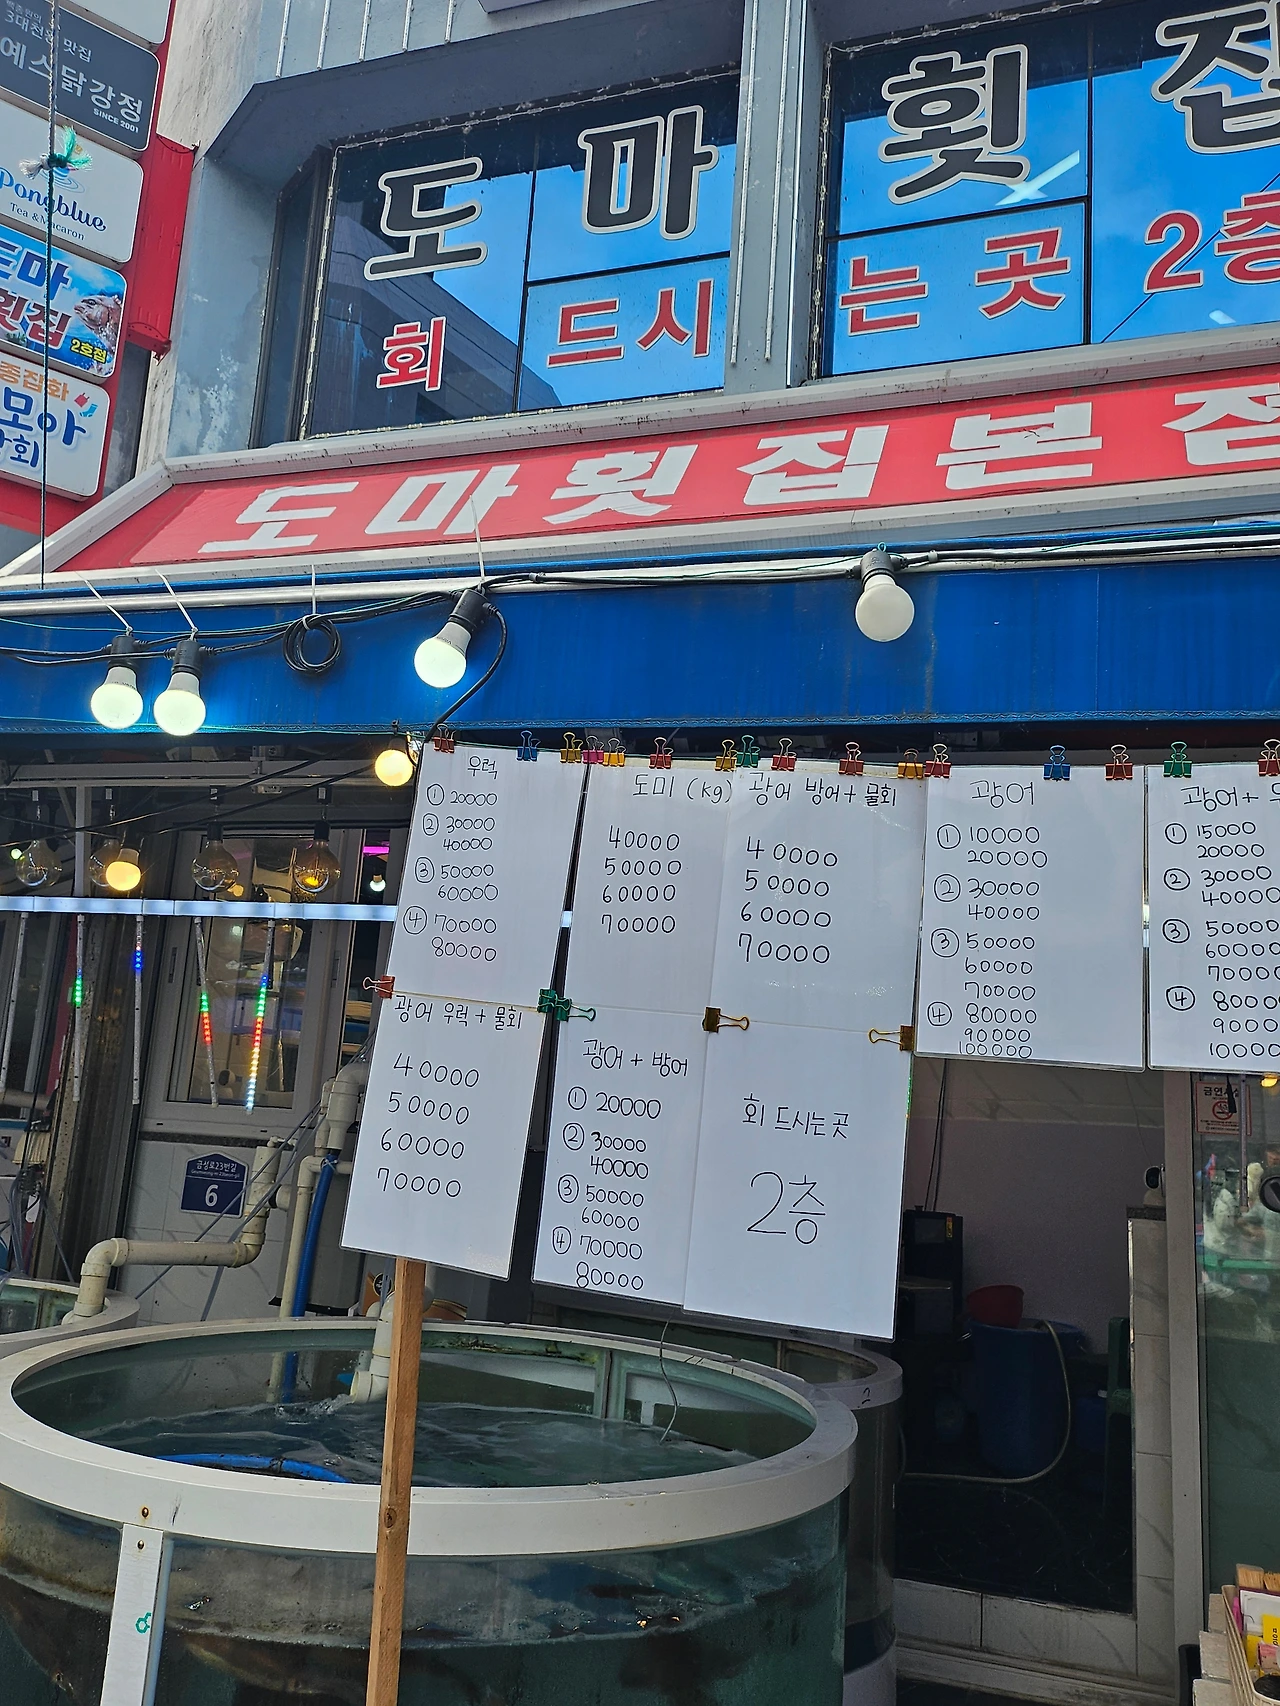 3대천왕 맛집
예스닭강정
SINCE 2001
Pongblue
Tea & Macaron
도마
횟집
2호점
모아
도마 횟집
회 드시는 곳 2층
도마횟집본점
우럭
① 20000
② 30000
40000
③ 50000
60000
④ 70000
80000
도미 (kg)
40000
50000
60000
70000
광어 방어 + 물회
40000
50000
60000
70000
광어
① 10000
20000
② 30000
40000
③ 50000
60000
70000
④ 80000
90000
100000
광어 +
① 15000
20000
② 30000
40000
③ 50000
60000
70000
④
광어 우럭 + 물회
40000
50000
60000
70000
광어 + 방어
① 20000
② 30000
40000
③ 50000
60000
④ 70000
80000
회 드시는곳
2층
금성로23번길
6